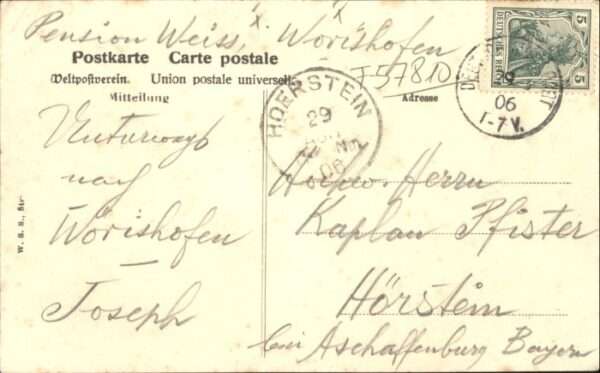 Pension Weiss, Wörishofen
Postkarte Carte postale
Weltpostverein. Union postale universelle
Mitteilung
Adresse
J 57810
5 DEUTSCHES REICH 5
06
1-7 V.
HOERSTEIN
29
Nm
06
Unterwegs
nach
Wörishofen
—
Joseph
Hochw. Herrn
Kaplan Pfister
Hörstein
bei Aschaffenburg Bayern
W. S. S., Str